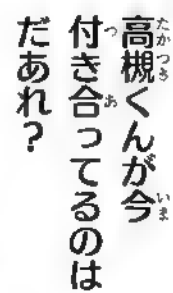 高槻くんが今
付き合ってるのは
だあれ?